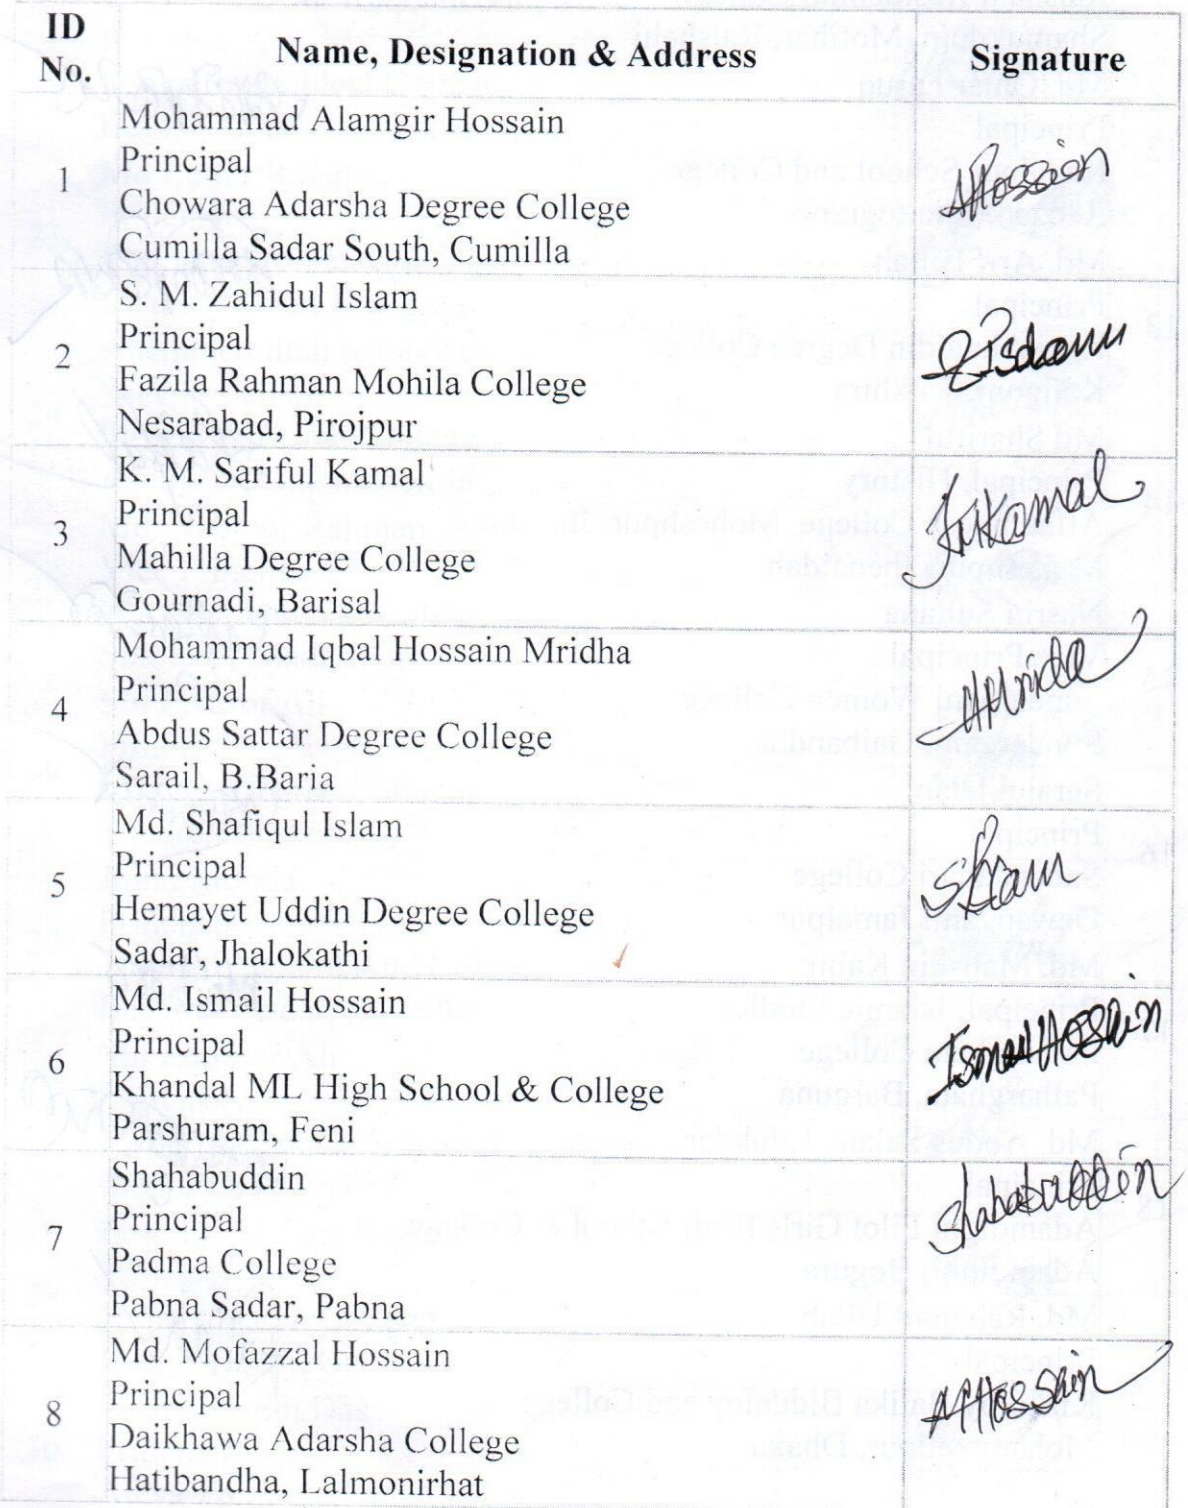 ID No. Name, Designation & Address Signature
Mohammad Alamgir Hossain
Principal
1 Chowara Adarsha Degree College AHossain
Cumilla Sadar South, Cumilla
S. M. Zahidul Islam
Principal
2 Fazila Rahman Mohila College
Nesarabad, Pirojpur
K. M. Sariful Kamal
Principal
3 Mahilla Degree College Kamal
Gournadi, Barisal
Mohammad Iqbal Hossain Mridha
Principal
4 Abdus Sattar Degree College
Sarail, B.Baria
Md. Shafiqul Islam
Principal
5 Hemayet Uddin Degree College
Sadar, Jhalokathi
Md. Ismail Hossain
Principal
6 Khandal ML High School & College Ismail Hossain
Parshuram, Feni
Shahabuddin
Principal
7 Padma College Shahabuddin
Pabna Sadar, Pabna
Md. Mofazzal Hossain
Principal
8 Daikhawa Adarsha College MHossain
Hatibandha, Lalmonirhat